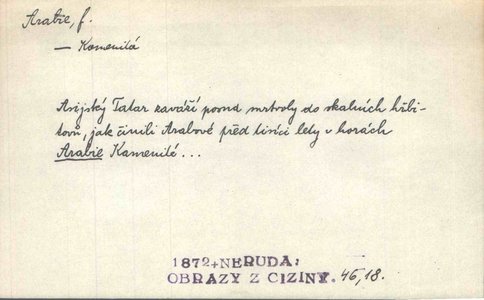 Arabie, f.
— Kamenitá
Asijský Tatar zaváží posud mrtvoly do skalních hřbi-
tovů, jak činili Arabové před tisíci lety v horách
Arabie Kamenité...
1872+NERUDA:
OBRAZY Z CIZINY. 46,18.